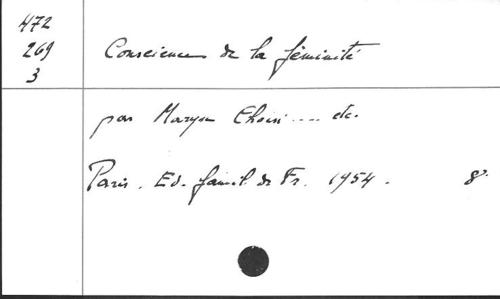 472
269
3
Conscience de la féminité
par Maryse Choisi .... etc.
Paris. Ed. famil. de Fr. 1954. 8°